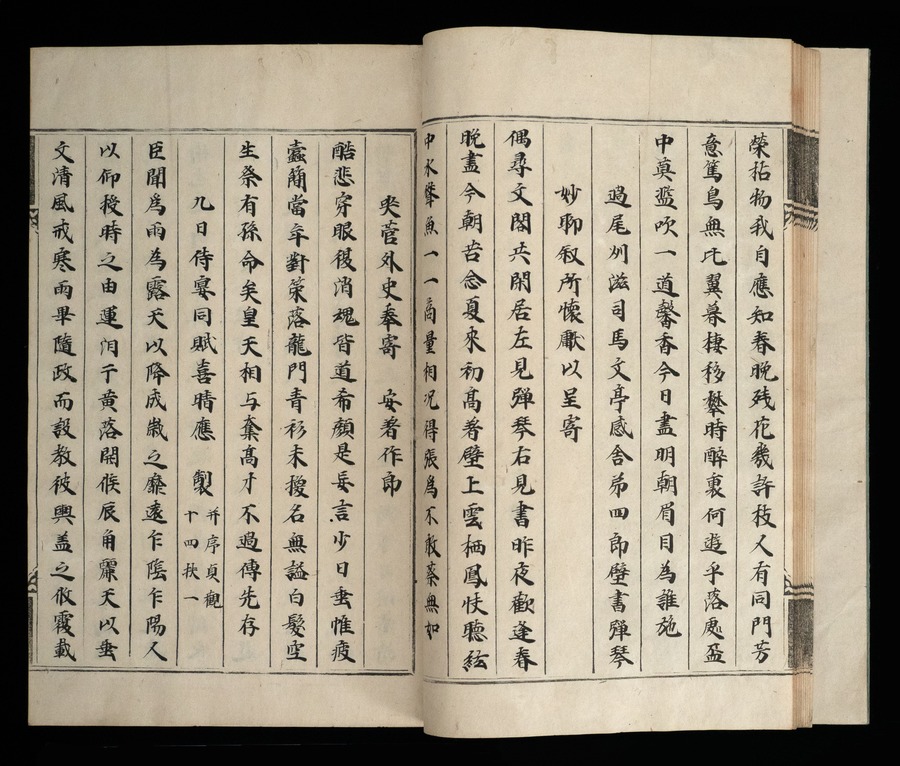 榮枯物我自應知春晚残花幾許枝又有同門芳
意篤鳥無比翼暮棲移攀時醉裏何遊乎落處盃
中莫濫吹一道馨香今日盡明朝眉目為誰施
過尾州滋司馬文亭感舍弟四郎壁書彈琴
妙聊叙所懷獻以呈寄
偶尋文閣共閑居左見彈琴右見書昨夜歡逢春
晚盡今朝苦念夏來初高着壁上雲栖鳳怯聽絃
中水擊魚一一商量相况得張為不敢蔡無如
喪菅外史奉寄 安著作郎
酷悲穿眼復消魂皆道希顏是妄言少日垂帷疲
蠹簡當年對策落龍門青衫未換名無謚白髮空
生祭有孫命矣皇天相与棄高才不過傳先存
九日侍宴同賦喜晴應 製
并序貞觀
十四秋一
臣聞為雨為露天以降成歲之靡遠乍陰乍陽人
以仰授時之由運洎于黄落閑候辰角麗天以垂
文清風戒寒雨畢隨政而設教彼輿盖之攸覆載